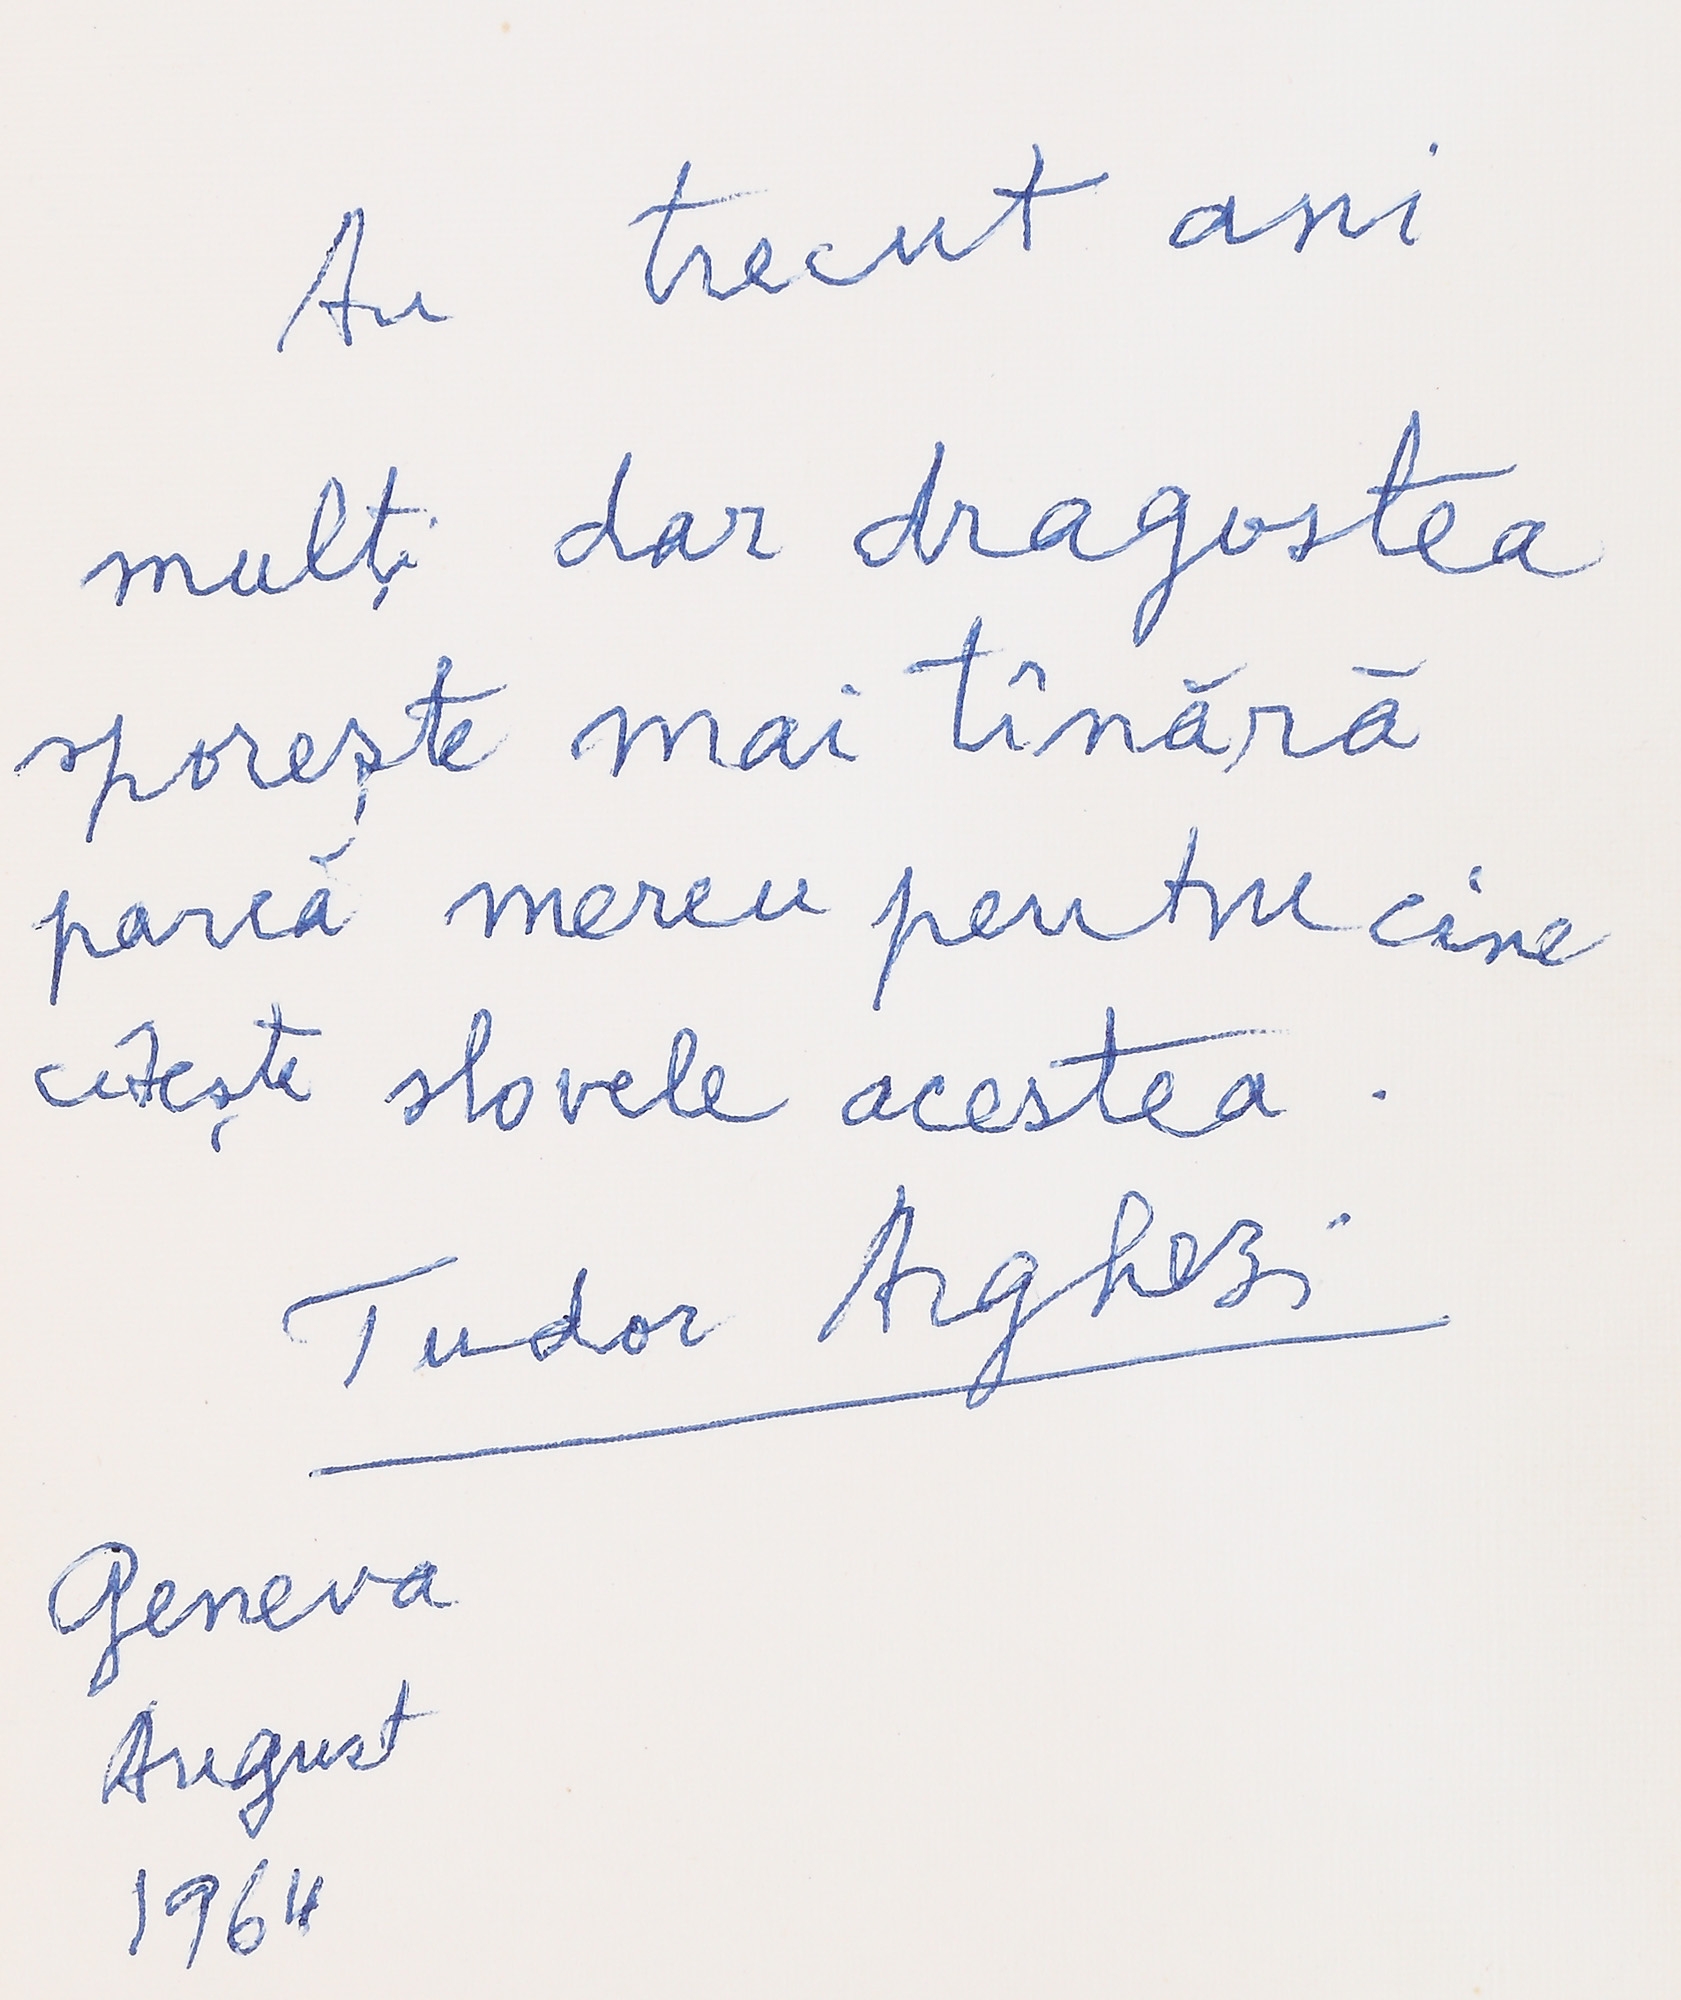 Au trecut ani
mulți dar dragostea
sporește mai tînără
parcă mereu pentru cine
citește slovele acestea.
Tudor Arghezi
Geneva
August
1964